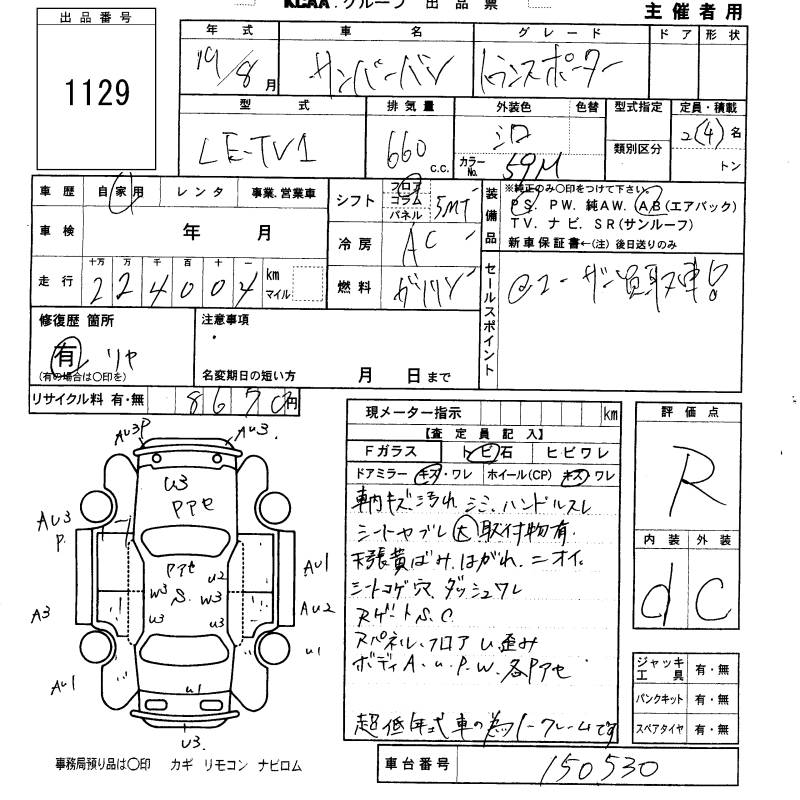 KCAA グループ 出品票
主催者用
出品番号
1129
年式 車名 グレード ドア 形状
19/8月 サンバーバン トランスポーター
型式 排気量 外装色 色替 型式指定 定員・積載
LE-TV1 660 c.c. シロ カラーNo. 59M 類別区分 2(4)名 トン
車歴 自家用 レンタ 事業.営業車
シフト フロア コラム パネル 5MT
装備品 ※純正のみ○印をつけて下さい。
PS. PW. 純AW. AB(エアバック)
TV. ナビ. SR(サンルーフ)
新車保証書←(注) 後日送りのみ
車検 年 月
冷房 AC
走行 十万 万 千 百 十 一
224004 km マイル
燃料 ガソリン
セールスポイント
ユーザー買取車!
修復歴 箇所
有 リヤ
(有の場合は○印を)
注意事項
名変期日の短い方 月 日まで
リサイクル料 有・無 8670円
現メーター指示 km
【査定員記入】
Fガラス トビ石 ヒビワレ
ドアミラー キズ・ワレ ホイール(CP) キズ・ワレ
車内キズ汚れ シミ、ハンドルスレ
シートヤブレ大 取付物有.
天張黄ばみ.はがれ.ニオイ.
シートコゲ穴 ダッシュワレ
Rゲート S.C.
Rパネル、フロア U 歪み
ボディA.U.P.W. 各Pアセ
超低年式車の為ノークレームです
評価点
R
内装 外装
d C
ジャッキ 工具 有・無
パンクキット 有・無
スペアタイヤ 有・無
AU3P AU3.
U3
Pアセ
AU3
P.
Pアセ U2
AU1
W3 S. W3
A3 U3 U3 AU2
U1
AU1 U1
U3.
事務局預り品は○印 カギ リモコン ナビロム
車台番号 150530